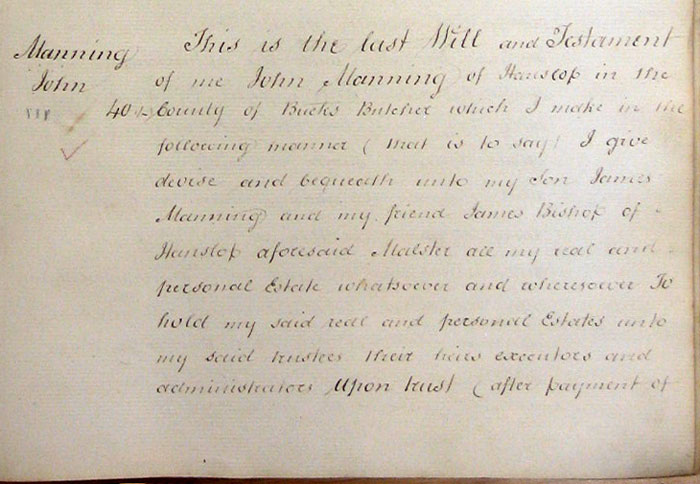 Manning
John
VIP
40
This is the last Will and Testament
of me John Manning of Hanslop in the
County of Bucks Butcher which I make in the
following manner (that is to say) I give
devise and bequeath unto my Son James
Manning and my friend James Bishop of
Hanslop aforesaid Malster all my real and
personal Estate whatsoever and wheresoever To
hold my said real and personal Estates unto
my said trustees their heirs executors and
administrators Upon trust (after payment of